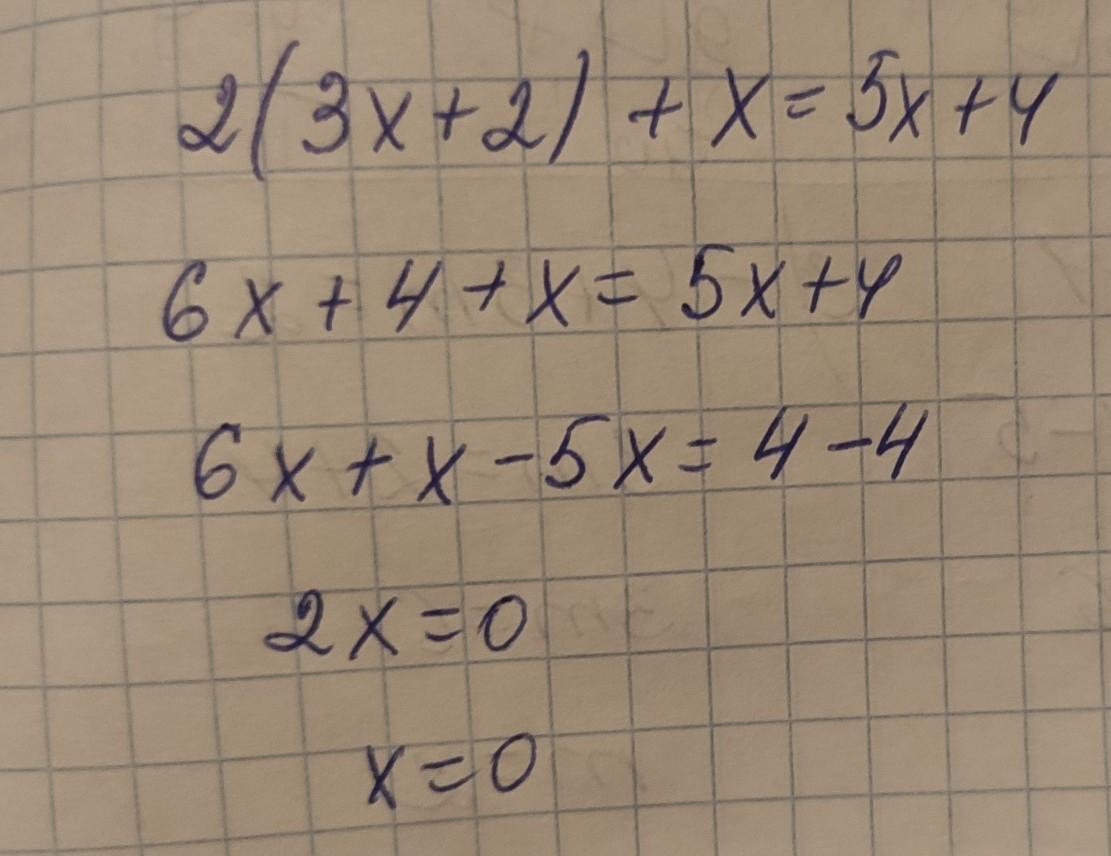 2(3x+2) + x = 5x+4
6x + 4 + x = 5x+4
6x + x - 5x = 4 - 4
2x = 0
x = 0